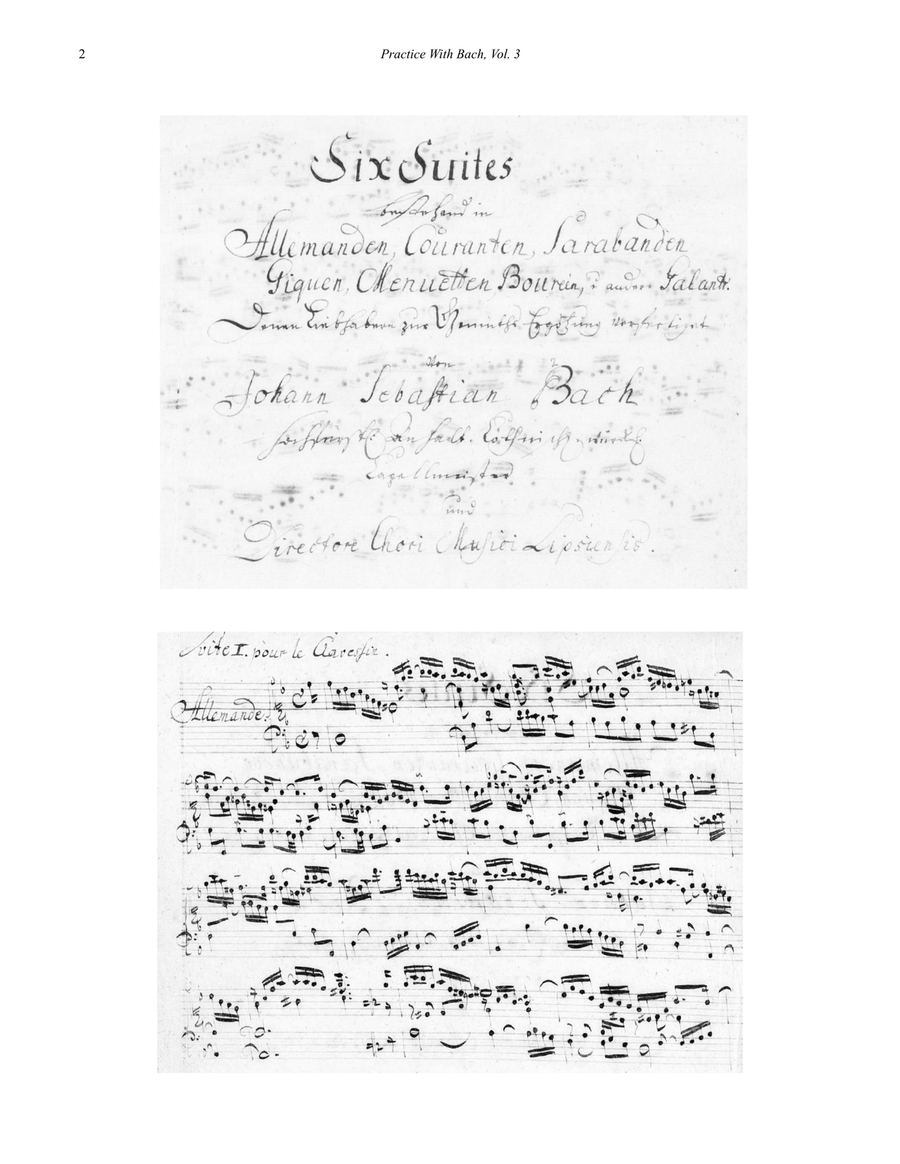 2
Practice With Bach, Vol. 3
Six Suites
bestehend in
Allemanden, Couranten, Sarabanden
Giquen, Menuetten Bourein, andere Galant.
Denen Liebhabern zur Ergötzung verfertiget
von
Johann Sebastian Bach
Capellmeister
und
Directore Chori Musici Lipsiensis.
Suite I. pour le Clavessin.
Allemande